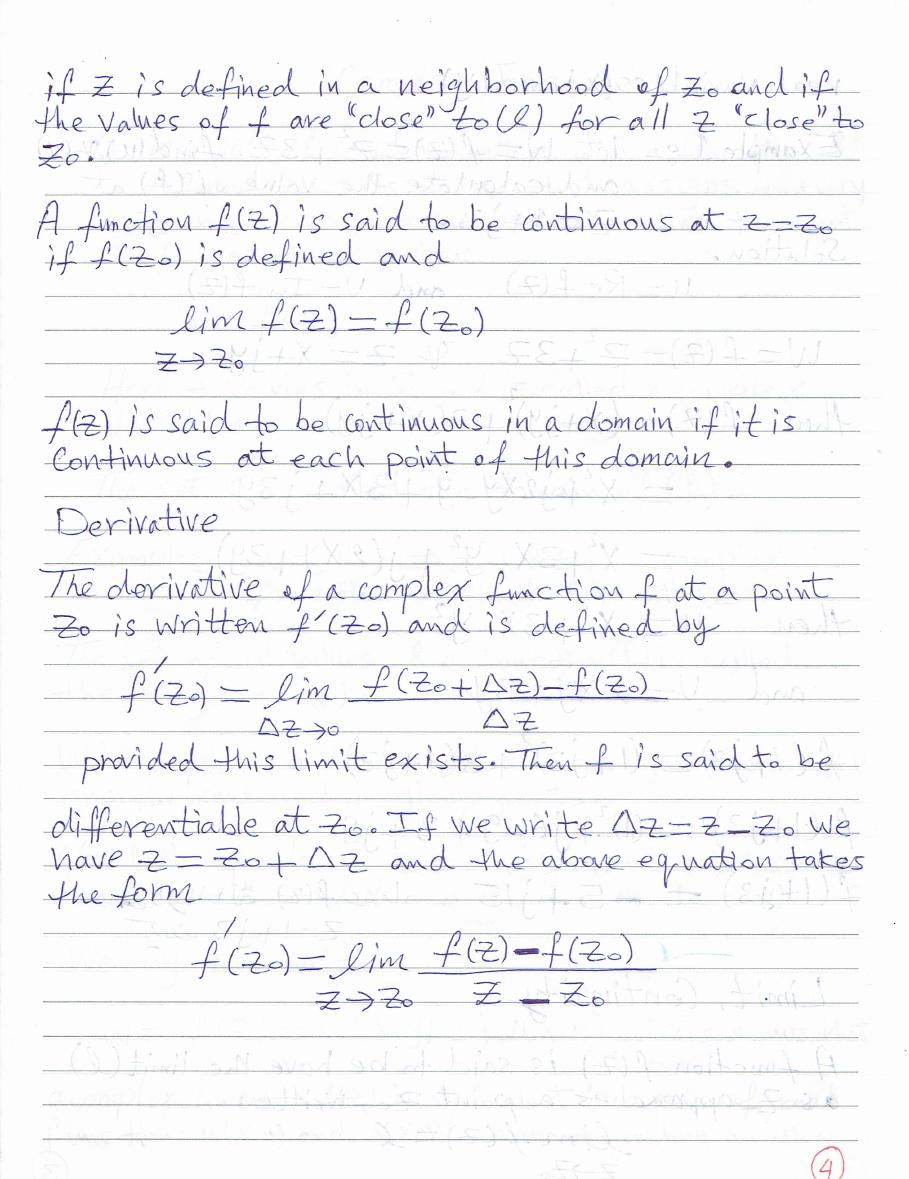 if z is defined in a neighborhood of z₀ and if
the values of f are "close" to (l) for all z "close" to
z₀.
A function f(z) is said to be continuous at z=z₀
if f(z₀) is defined and
lim f(z) = f(z₀)
z→z₀
f(z) is said to be continuous in a domain if it is
Continuous at each point of this domain.
Derivative
The derivative of a complex function f at a point
z₀ is written f′(z₀) and is defined by
f′(z₀) = lim f(z₀+Δz)−f(z₀)
Δz→0 Δz
provided this limit exists. Then f is said to be
differentiable at z₀. If we write Δz=z−z₀ we
have z=z₀+Δz and the above equation takes
the form
f′(z₀) = lim f(z)−f(z₀)
z→z₀ z − z₀
4